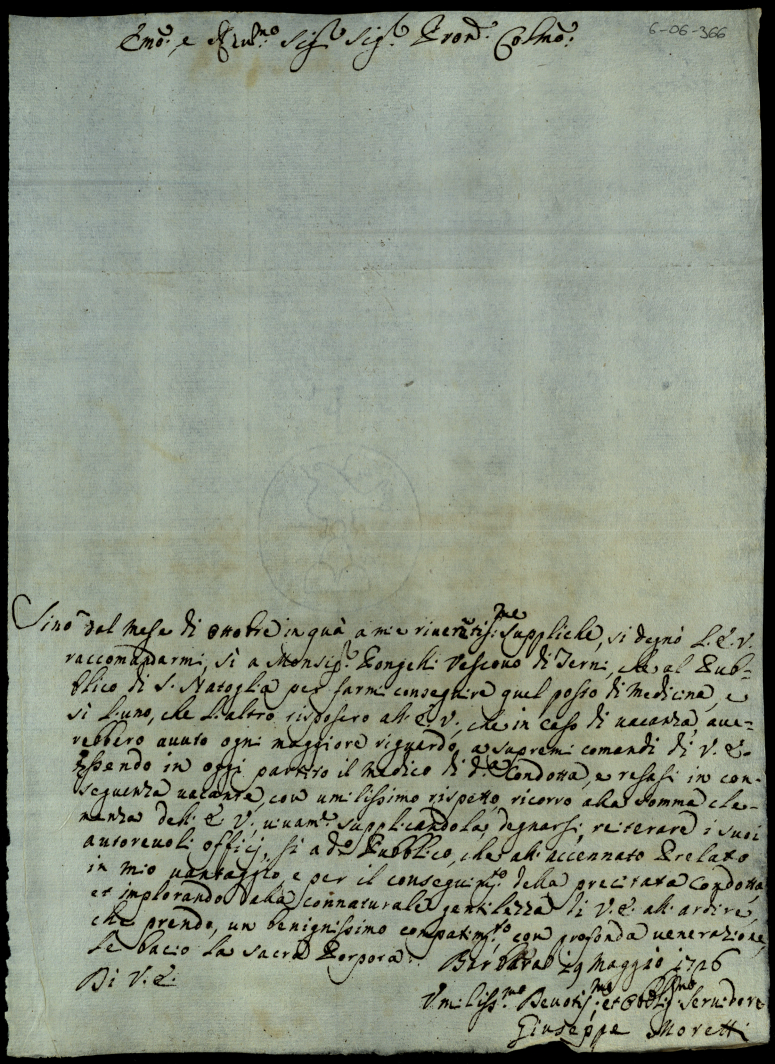 6-06-366
Emo: e Revmo Sigr Sigr Pron. Colmo:
Sino dal Mese di Ottobre in quà, a mie riverentissme Suppliche, si degnò L. E. V.
raccomandarmi, sì a Monsigr. Pongelli Vescovo di Terni, che al Pub=
blico di S. Natoglia per farmi conseguire quel posto di Medicina, e
sì l'uno, che l'altro risposero all'E. V., che in caso di vacanza, ave=
rebbero avuto ogni maggiore riguardo, a supremi comandi di V. E.
Essendo in oggi partito il Medico di da Condotta, e resasi in con=
seguenza vacante, con umilissimo rispetto, ricorro alla somma cle=
menza dell'E. V. vivamte supplicandola, degnarsi, reiterare i suoi
autorevoli offitij, sì a do Pubblico, che all'accennato Prelato
in mio vantaggio, e per il conseguimto della precitata Condotta,
et implorando dalla connaturale gentilezza di V. E. all'ardire,
che prendo, un benignissimo compatimto, con profonda venerazione,
le bacio la Sacra Porpora. Barbara 29 Maggio 1726
Di V. E.
Umilissmo Devotisme et Obbligmo Servidore
Giuseppe Moretti